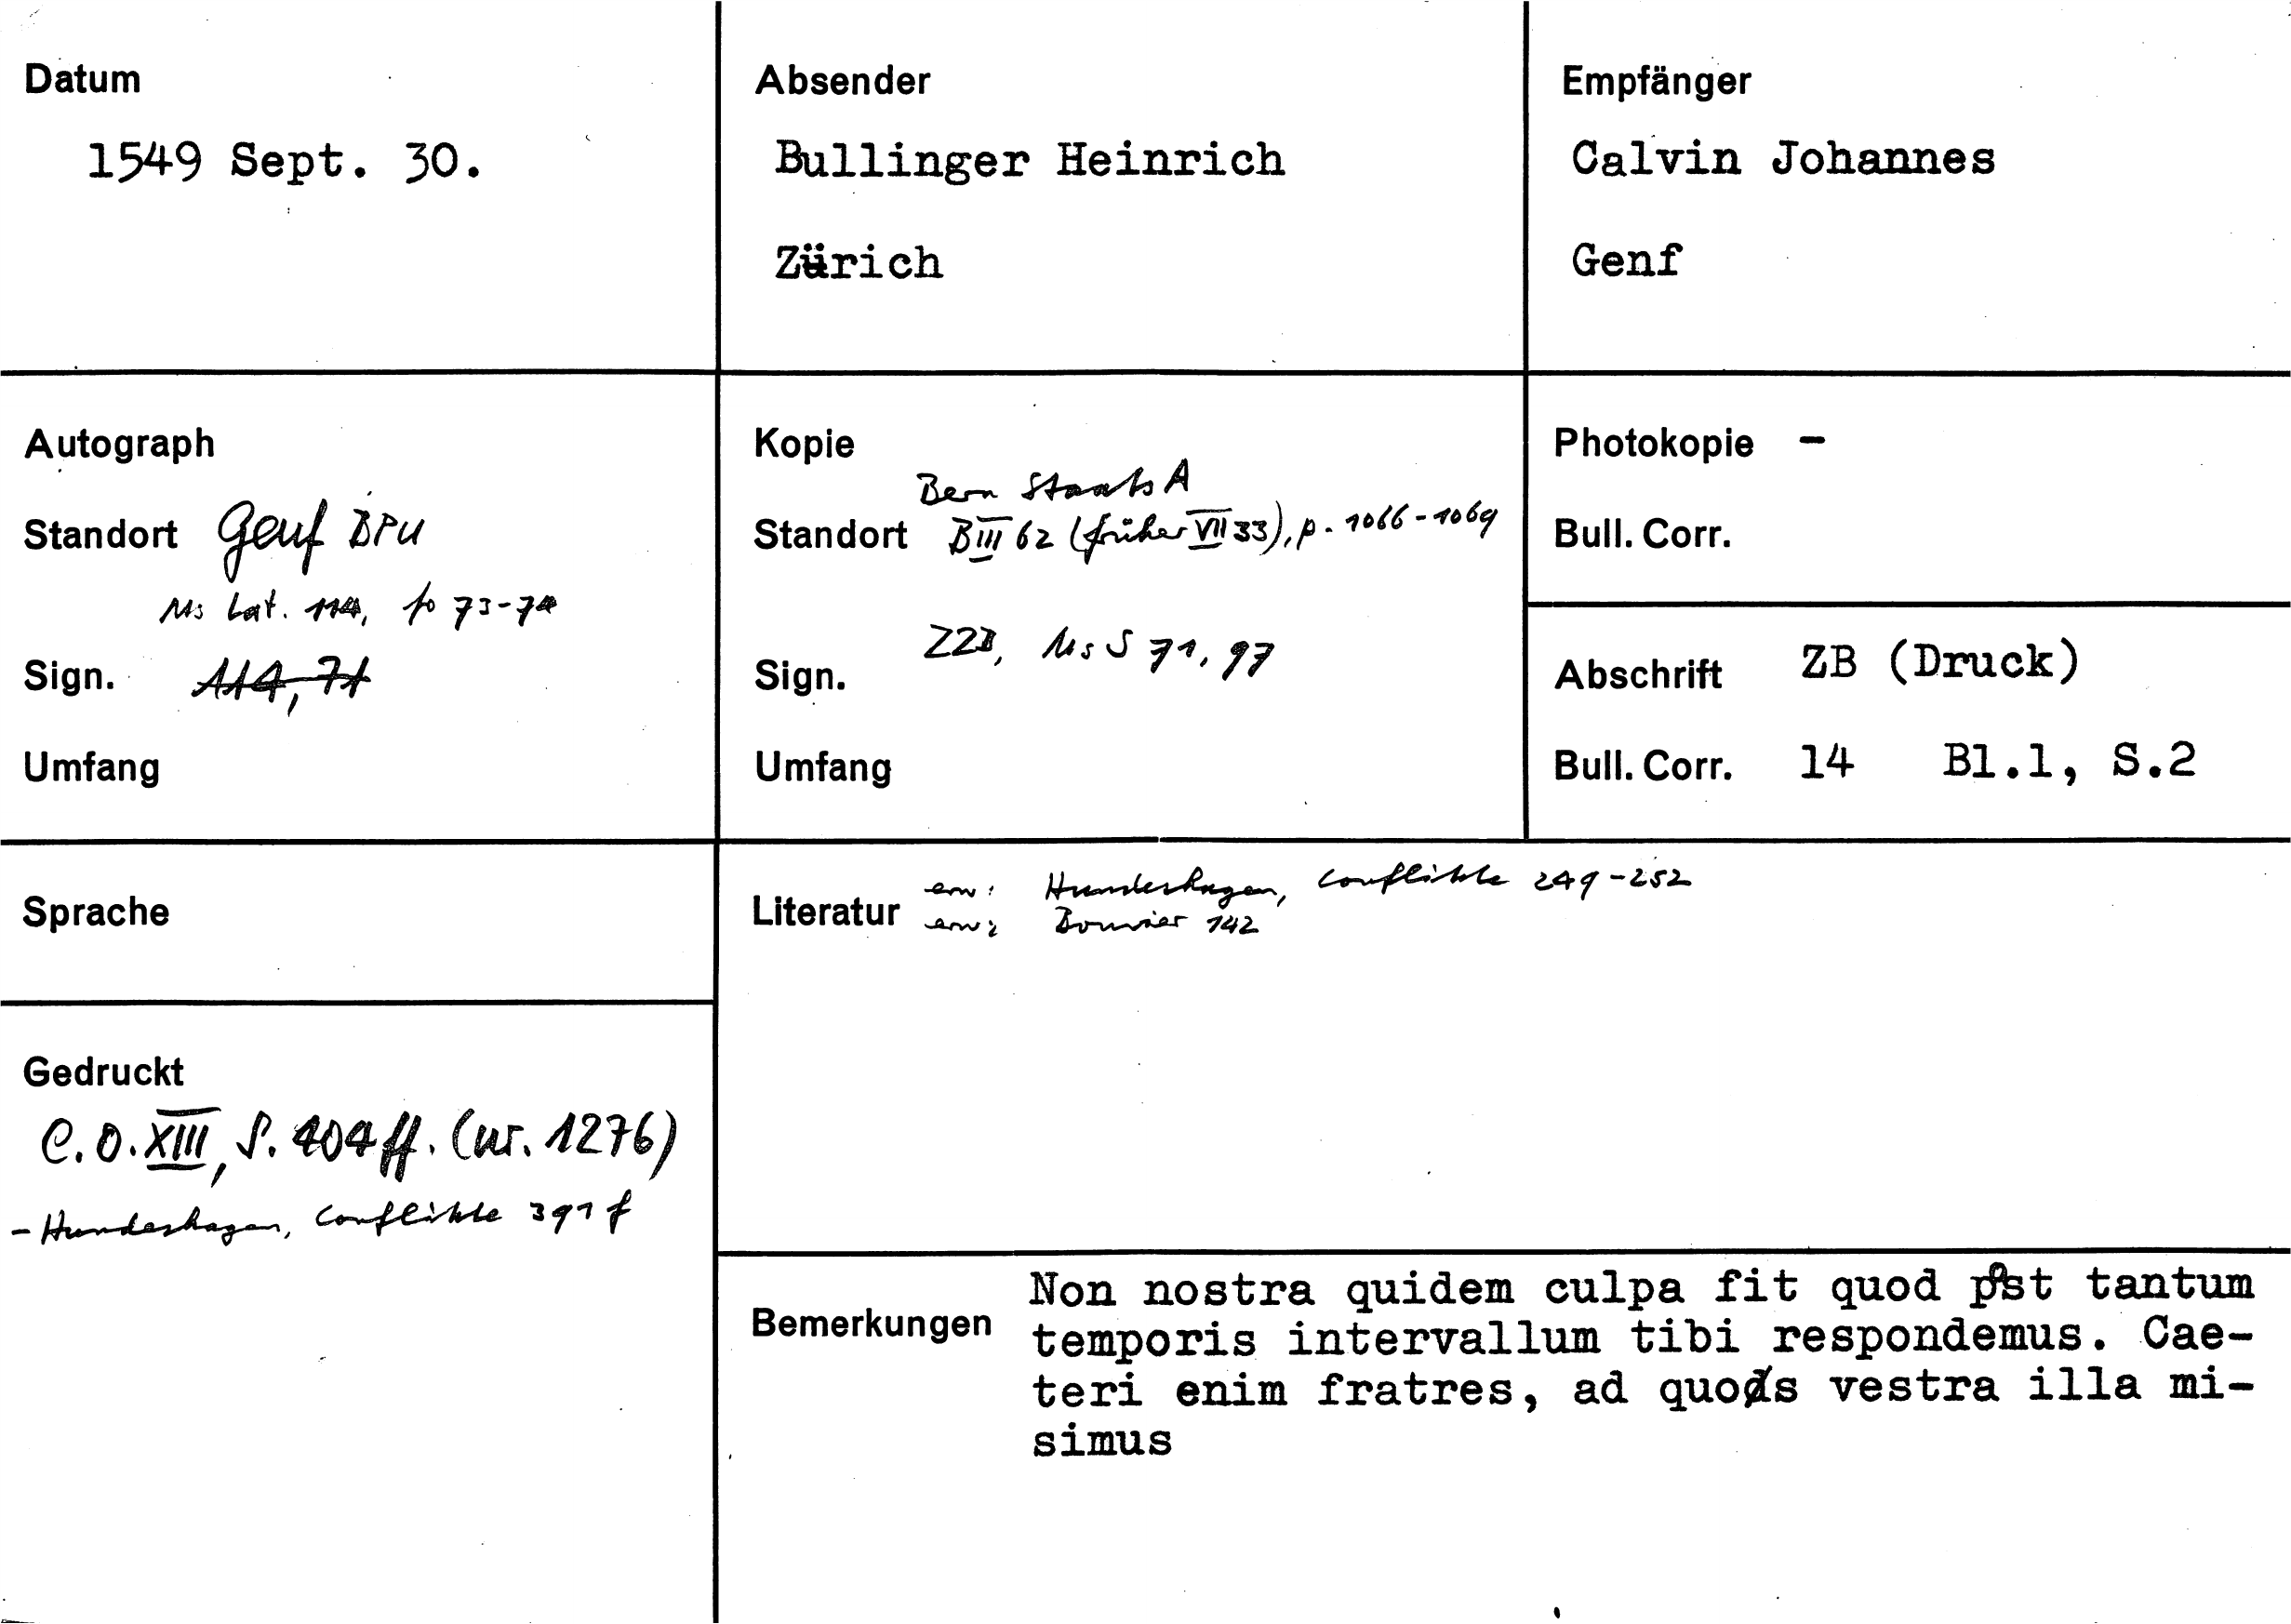 Datum
1549 Sept. 30.
Absender
Bullinger Heinrich
Zürich
Empfänger
Calvin Johannes
Genf
Autograph
Standort Genf BPU
Ms Lat. 114, fo 73-74
Sign. 114, 71
Umfang
Kopie
Bern Staats A
Standort B III 62 (früher VII 33), p. 1066-1069
ZZB, Ms S 71, 97
Sign.
Umfang
Photokopie -
Bull. Corr.
Abschrift ZB (Druck)
Bull. Corr. 14 Bl.1, S.2
Sprache
Literatur erw: Hundeshagen, Conflikte 249-252
erw: Bouvier 142
Gedruckt
C.O. XIII, S. 404 ff. (nr. 1276)
- Hundeshagen, Conflikte 391 f
Bemerkungen
Non nostra quidem culpa fit quod post tantum
temporis intervallum tibi respondemus. Cae-
teri enim fratres, ad quos vestra illa mi-
simus